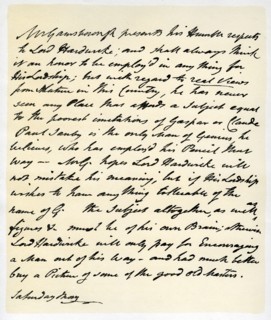 Mr Gainsborough presents his Humble respects
to Lord Hardwicke; and shall always think
it an honor to be employ'd in any thing for
his Lordship; but with regard to real Views
from Nature in this Country, he has never
seen any Place that affords a Subject equal
to the poorest imitations of Gaspar or Claude
Paul Sanby is the only Man of Genius, he
believes, who has employ'd his Pencil that
way — Mr G. hopes Lord Hardwicke will
not mistake his meaning, but if his Lordship
wishes to have any thing tollerable of the
name of G. the Subject altogether, as well as
figures &c. must be of his own Brain; otherwise
Lord Hardwicke will only pay for Encouraging
a Man out of his Way — and had much better
buy a Picture of some of the good old Masters.
Saturday Morg